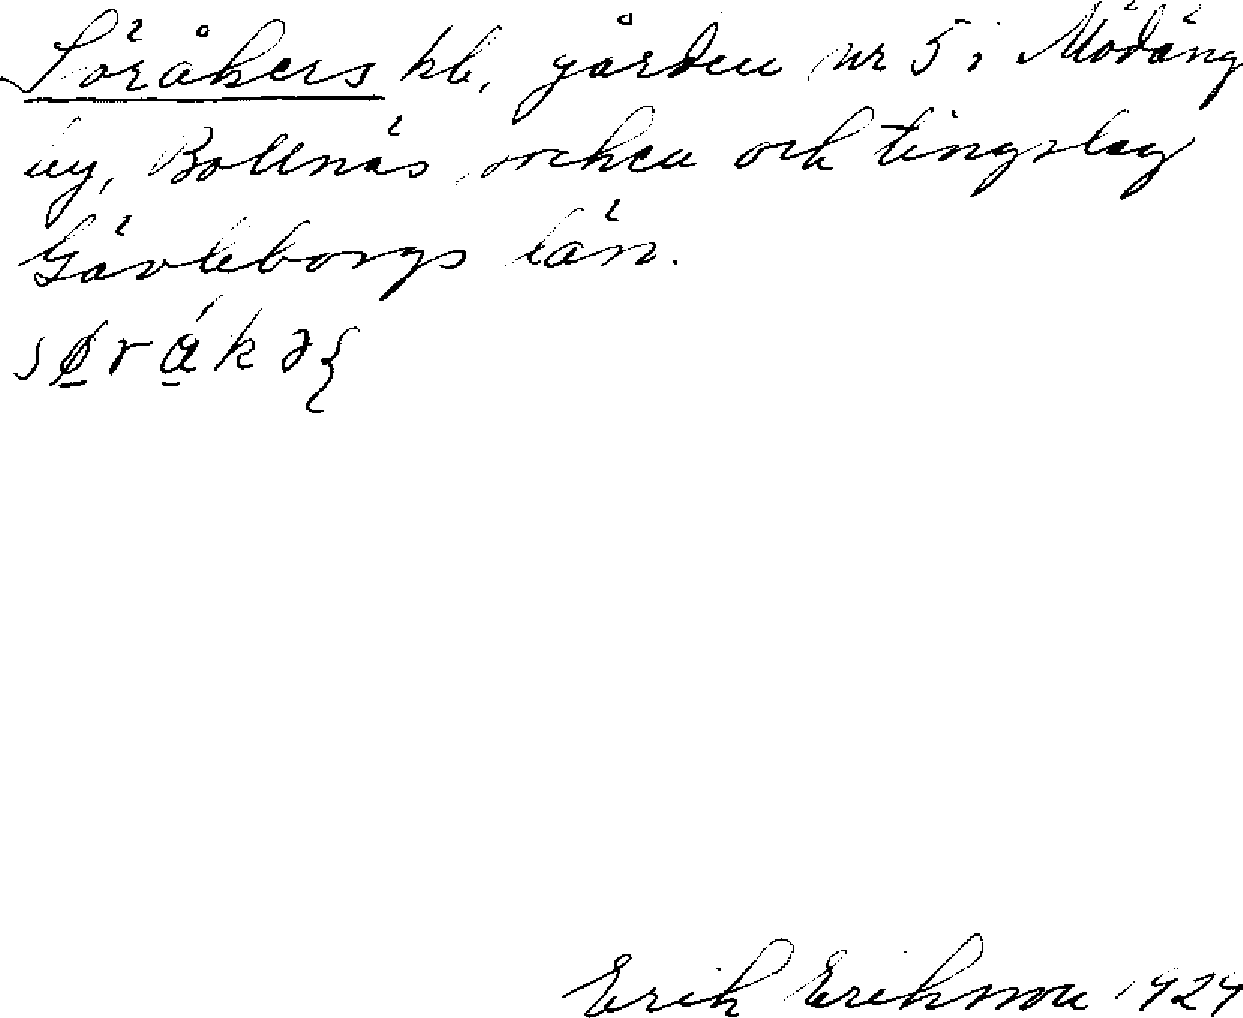 Söråkers hb, gården nr 5 i Mödäng
by, Bollnäs socken och tingslag
Gävleborgs län.
Erik Eriksson 1929